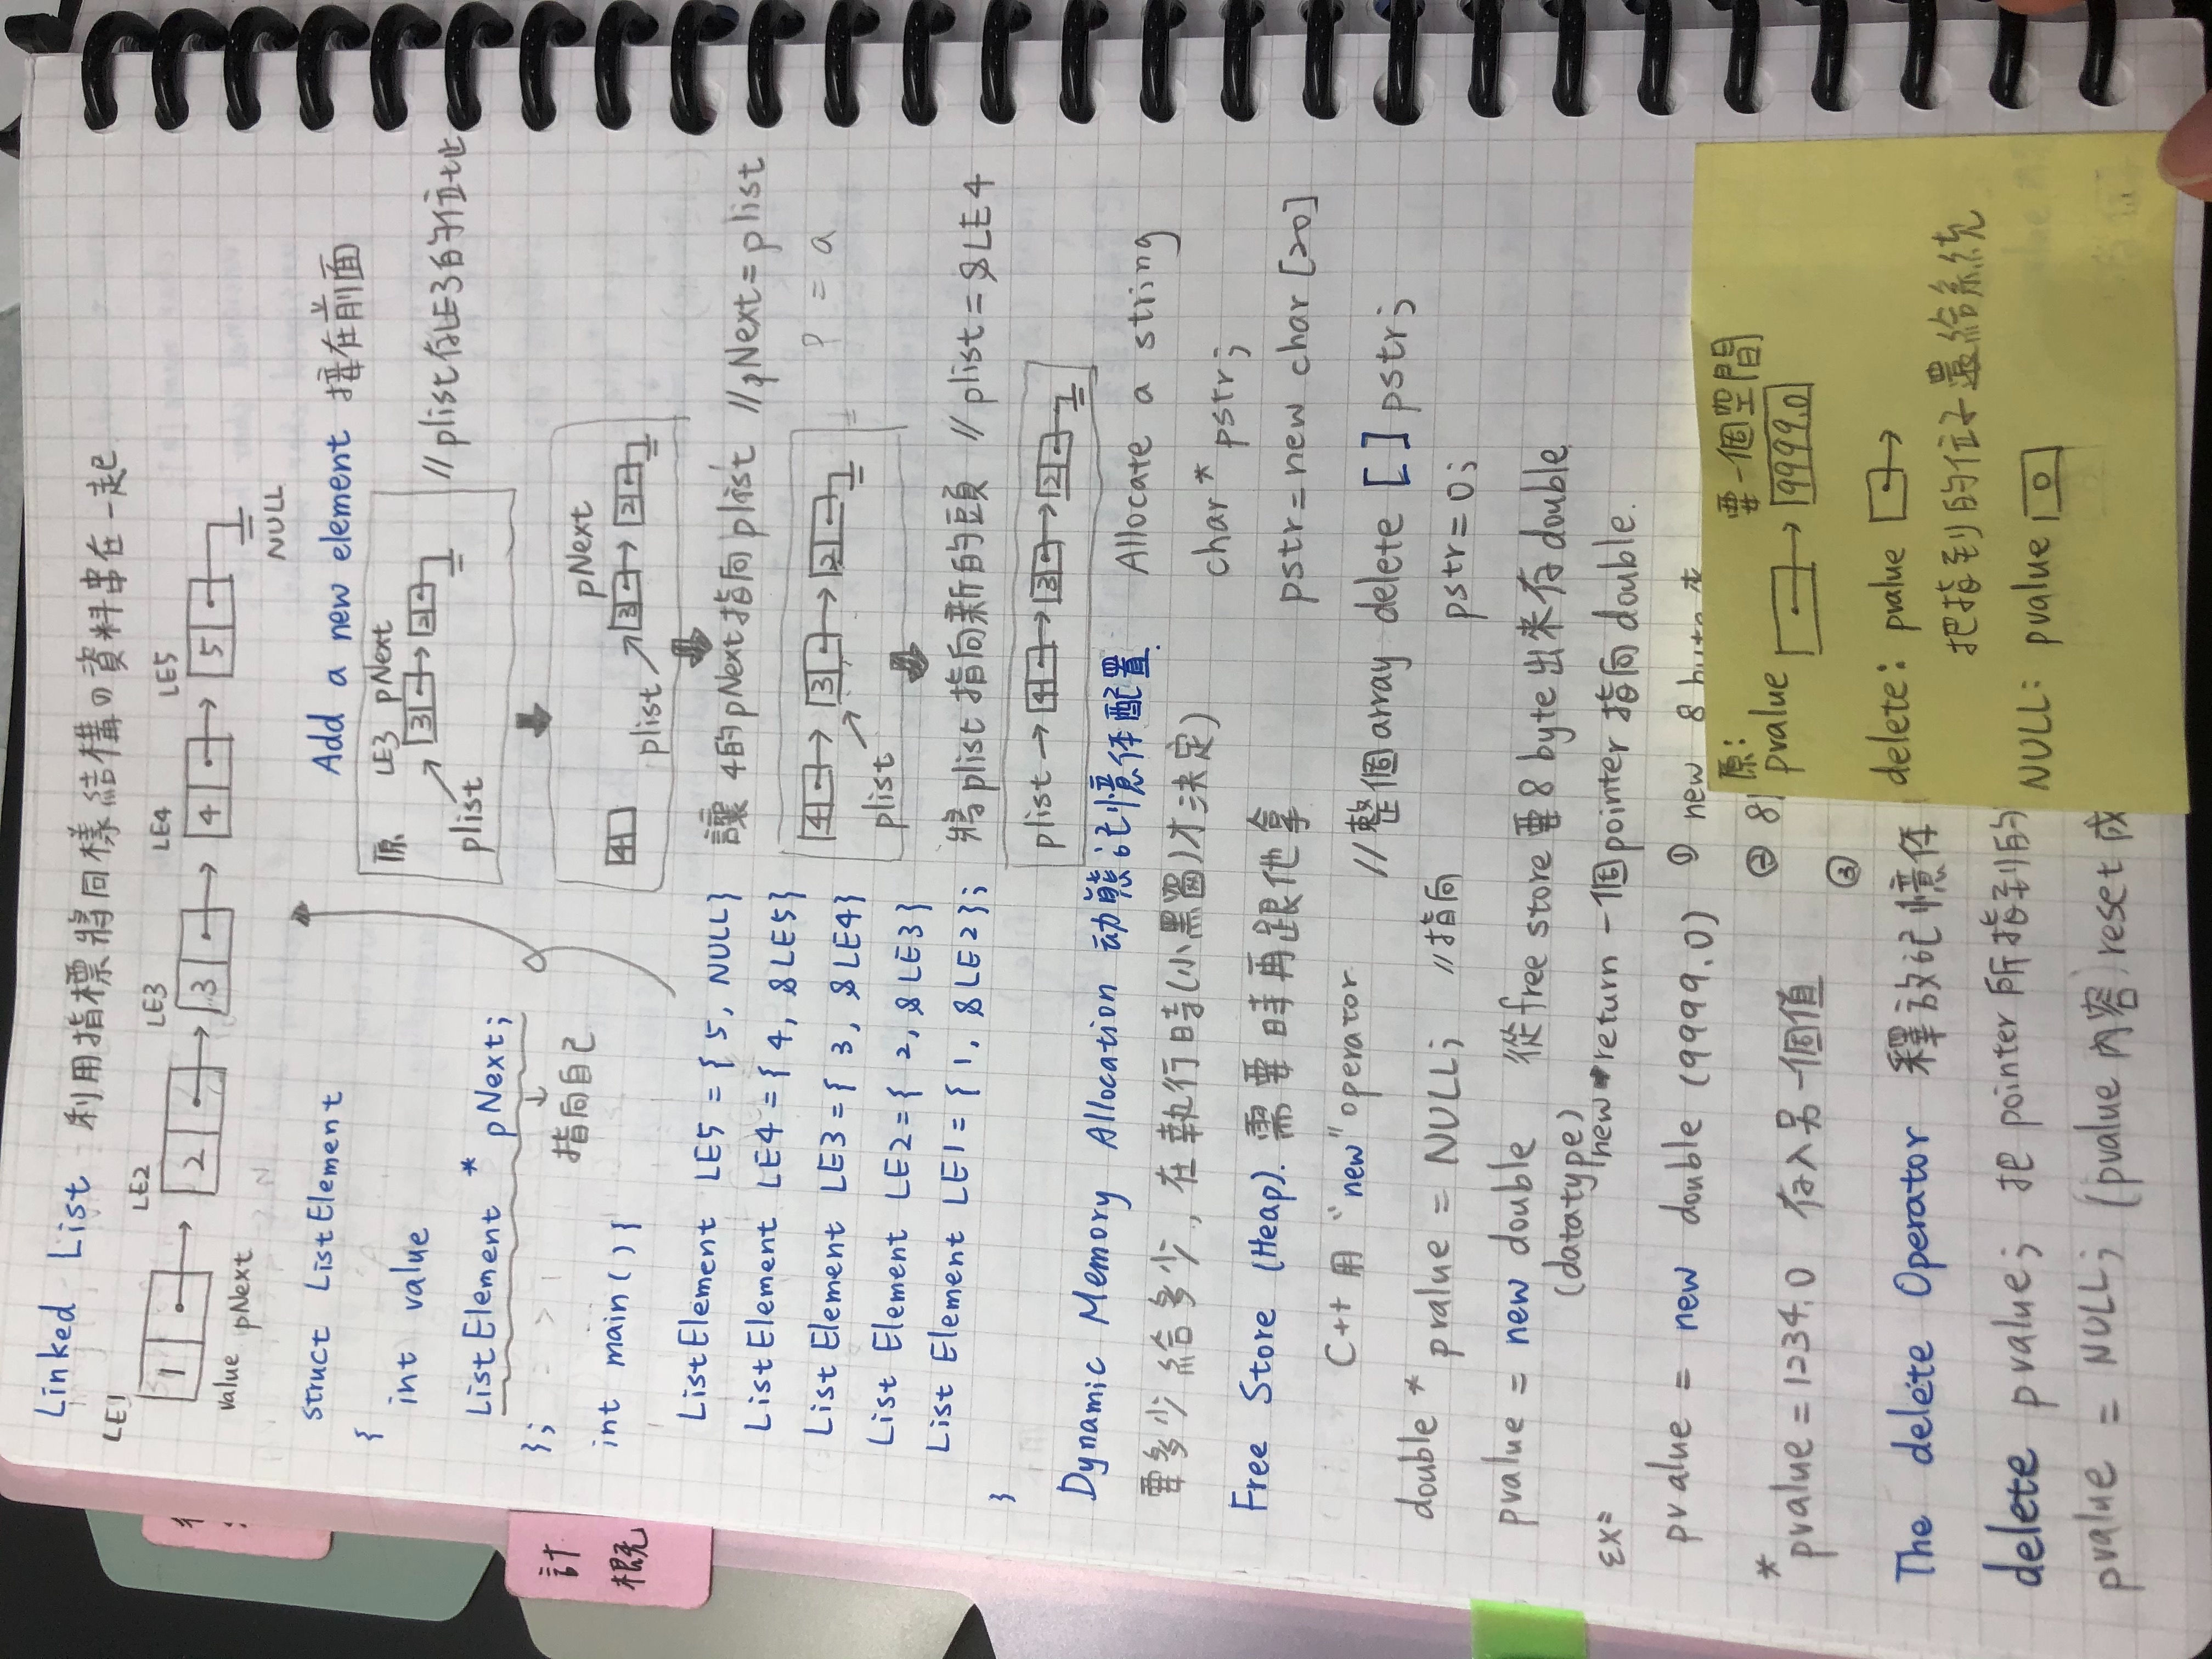 Linked List 利用指標將同樣結構の資料串在一起
LE1 LE2 LE3 LE4 LE5
1 2 3 4 5
value pNext
NULL
struct ListElement
{
int value
ListElement * pNext;
};
指向自己
int main(){
ListElement LE5 = { 5, NULL}
ListElement LE4 = { 4, &LE5}
List Element LE3 = { 3, &LE4}
List Element LE2 = { 2, &LE3}
List Element LE1 = { 1, &LE2};
}
Add a new element 接在前面
原 LE3 pNext
3 2
plist
//plist存LE3的位址
pNext
4 3 2
plist
讓 4的pNext指向plist //pNext=plist
p = a
4 3 2
plist
將plist指向新的頭 // plist = &LE4
plist → 4 → 3 → 2
計
概
Dynamic Memory Allocation 动態记憶体配置
要多少給多少, 在執行時(小黑窗)才決定)
Free Store (Heap). 需要時再跟他拿
C++ 用 "new" operator
double * pvalue = NULL; //指向
pvalue = new double 從free store 要8 byte出來存double
(datatype)
new return 一個pointer 指向double.
Allocate a string
char* pstr;
pstr = new char [20]
//整個array delete [ ] pstr;
pstr = 0;
EX:
pvalue = new double (9999.0) ① new 8 byte 來
② 8
*pvalue = 1234.0 存入另一個值
③
The delete Operator 釋放记憶体
delete pvalue; 把 pointer 所指到的
pvalue = NULL; (pvalue 內容 reset 成
原: 要一個空間
pvalue → 9999.0
delete: pvalue →
把指到的位子還給系統
NULL: pvalue 0